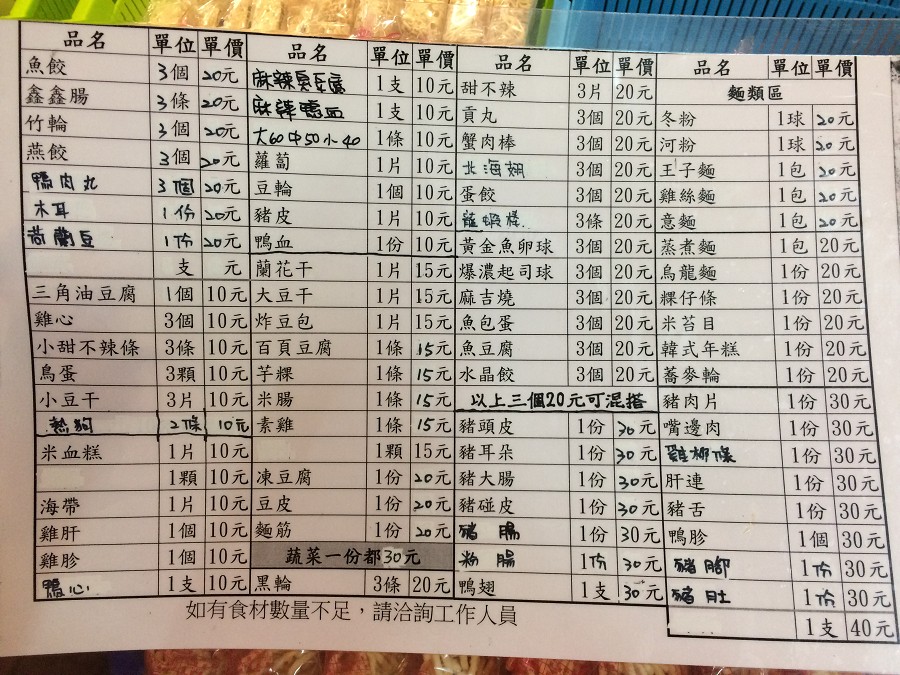 品名 單位 單價
魚餃 3個 20元
鑫鑫腸 3條 20元
竹輪 3個 20元
燕餃 3個 20元
鴨肉丸 3個 20元
木耳 1份 20元
荷蘭豆 1份 20元
支 元
三角油豆腐 1個 10元
雞心 3個 10元
小甜不辣條 3條 10元
鳥蛋 3顆 10元
小豆干 3片 10元
熱狗 2條 10元
米血糕 1片 10元
1顆 10元
海帶 1片 10元
雞肝 1個 10元
雞胗 1個 10元
鴨心 1支 10元
品名 單位 單價
麻辣臭豆腐 1支 10元
麻辣鴨血 1支 10元
大60中50小40 1條 10元
蘿蔔 1片 10元
豆輪 1個 10元
豬皮 1片 10元
鴨血 1份 10元
蘭花干 1片 15元
大豆干 1片 15元
炸豆包 1片 15元
百頁豆腐 1條 15元
芋粿 1條 15元
米腸 1條 15元
素雞 1條 15元
1顆 15元
凍豆腐 1份 20元
豆皮 1份 20元
麵筋 1份 20元
蔬菜一份都30元
黑輪 3條 20元
品名 單位 單價
甜不辣 3片 20元
貢丸 3個 20元
蟹肉棒 3個 20元
北海翅 3個 20元
蛋餃 3個 20元
龍蝦棒 3條 20元
黃金魚卵球 3個 20元
爆濃起司球 3個 20元
麻吉燒 3個 20元
魚包蛋 3個 20元
魚豆腐 3個 20元
水晶餃 3個 20元
以上三個20元可混搭
豬頭皮 1份 30元
豬耳朵 1份 30元
豬大腸 1份 30元
豬碰皮 1份 30元
豬腸 1份 30元
粉腸 1份 30元
鴨翅 1支 30元
品名 單位 單價
麵類區
冬粉 1球 20元
河粉 1球 20元
王子麵 1包 20元
雞絲麵 1包 20元
意麵 1包 20元
蒸煮麵 1包 20元
烏龍麵 1份 20元
粿仔條 1份 20元
米苔目 1份 20元
韓式年糕 1份 20元
蕎麥輪 1份 20元
豬肉片 1份 30元
嘴邊肉 1份 30元
雞柳條 1份 30元
肝連 1份 30元
豬舌 1份 30元
鴨胗 1個 30元
豬腳 1份 30元
豬肚 1份 30元
1支 40元
如有食材數量不足，請洽詢工作人員